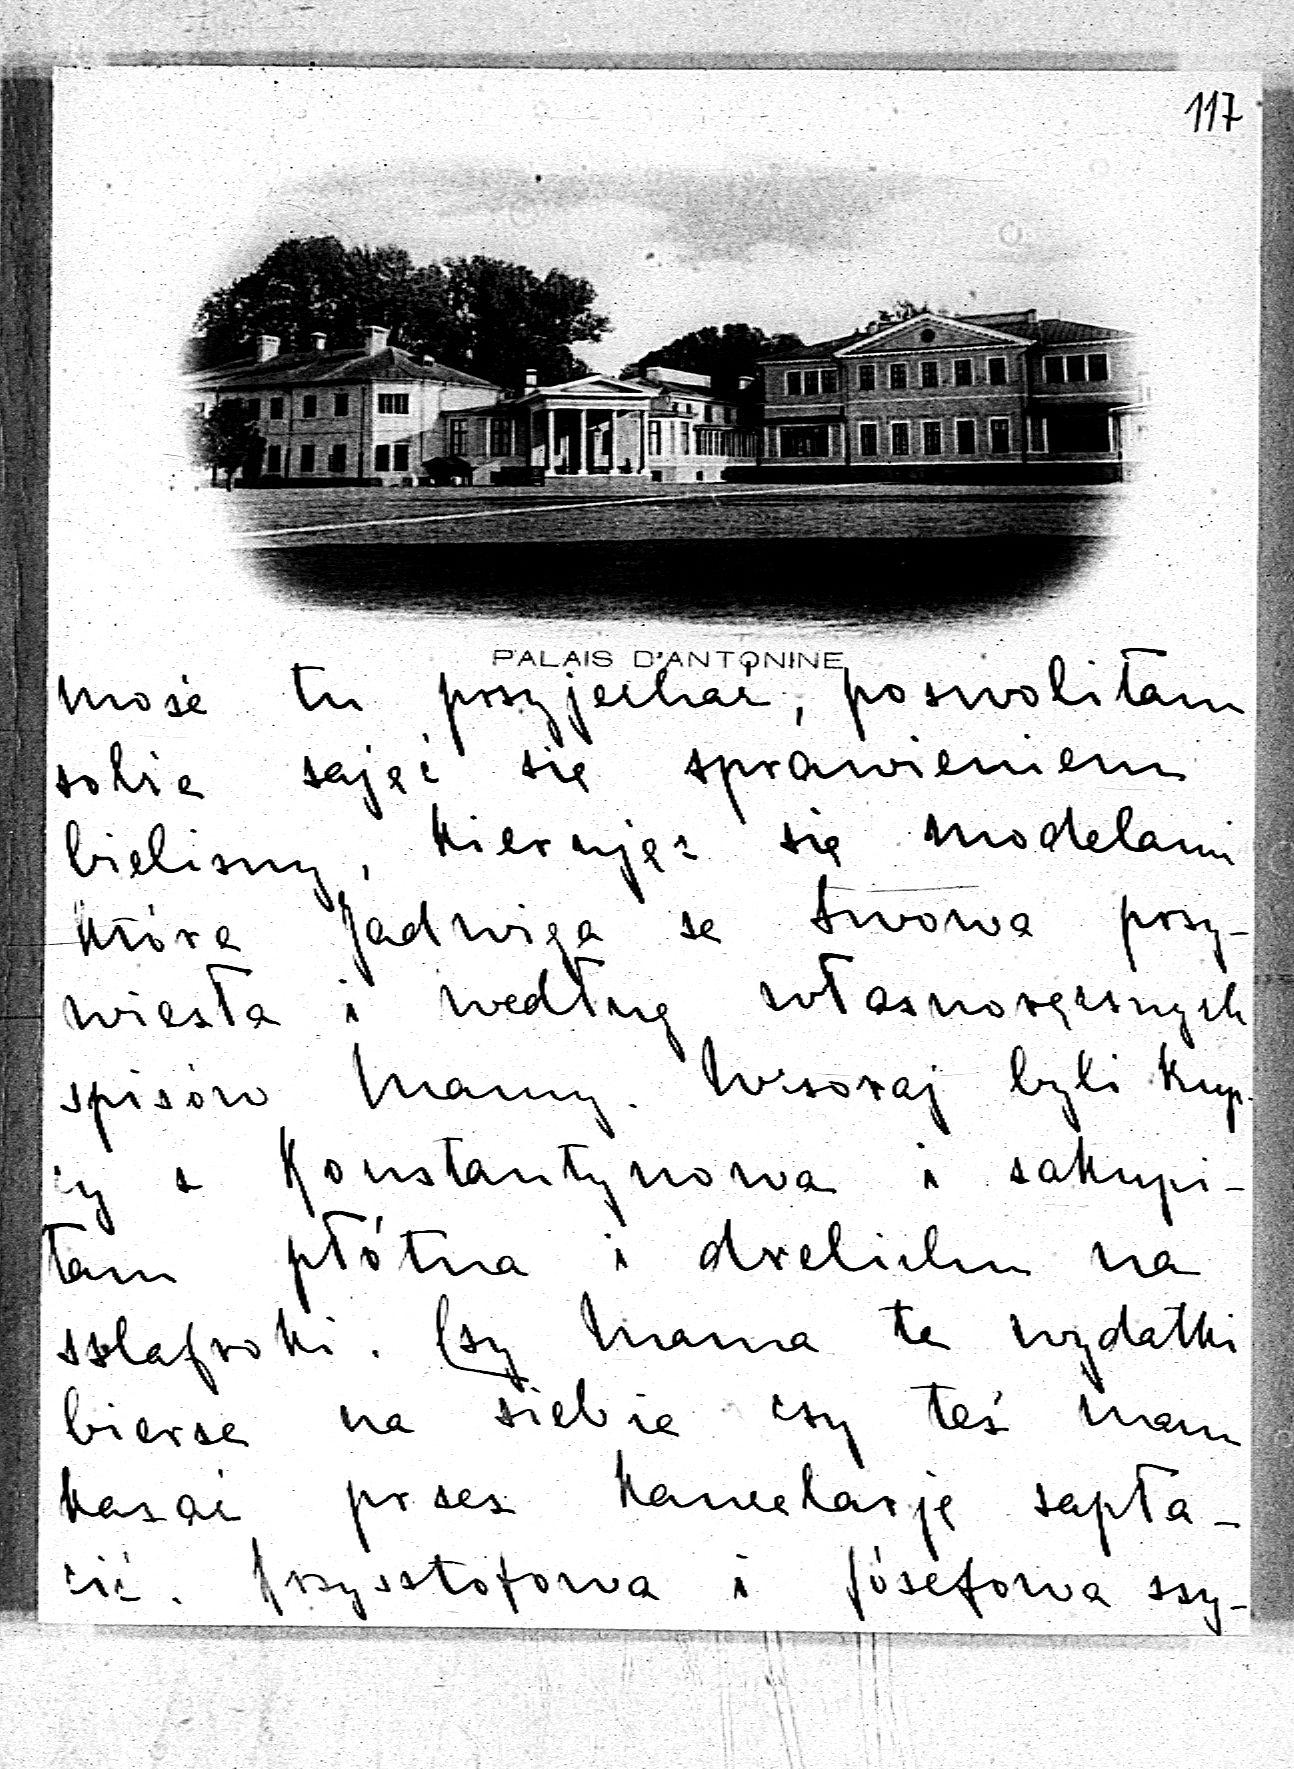 117
PALAIS D'ANTONINE
może tu przyjechać, pozwoliłam
sobie zająć się sprawieniem
bielizny, kierując się modelami
które Jadwiga ze Lwowa przy-
wiezła i według własnoręcznych
spisów Mamy. Wczoraj byli kup-
cy z Konstantynowa i zakupi-
łam płótna i drelichu na
szlafroki. Czy Mama te wydatki
bierze na siebie czy też mam
kazać przez kancelarję zapła-
cić. Krzysztofowa i Józefowa szy-